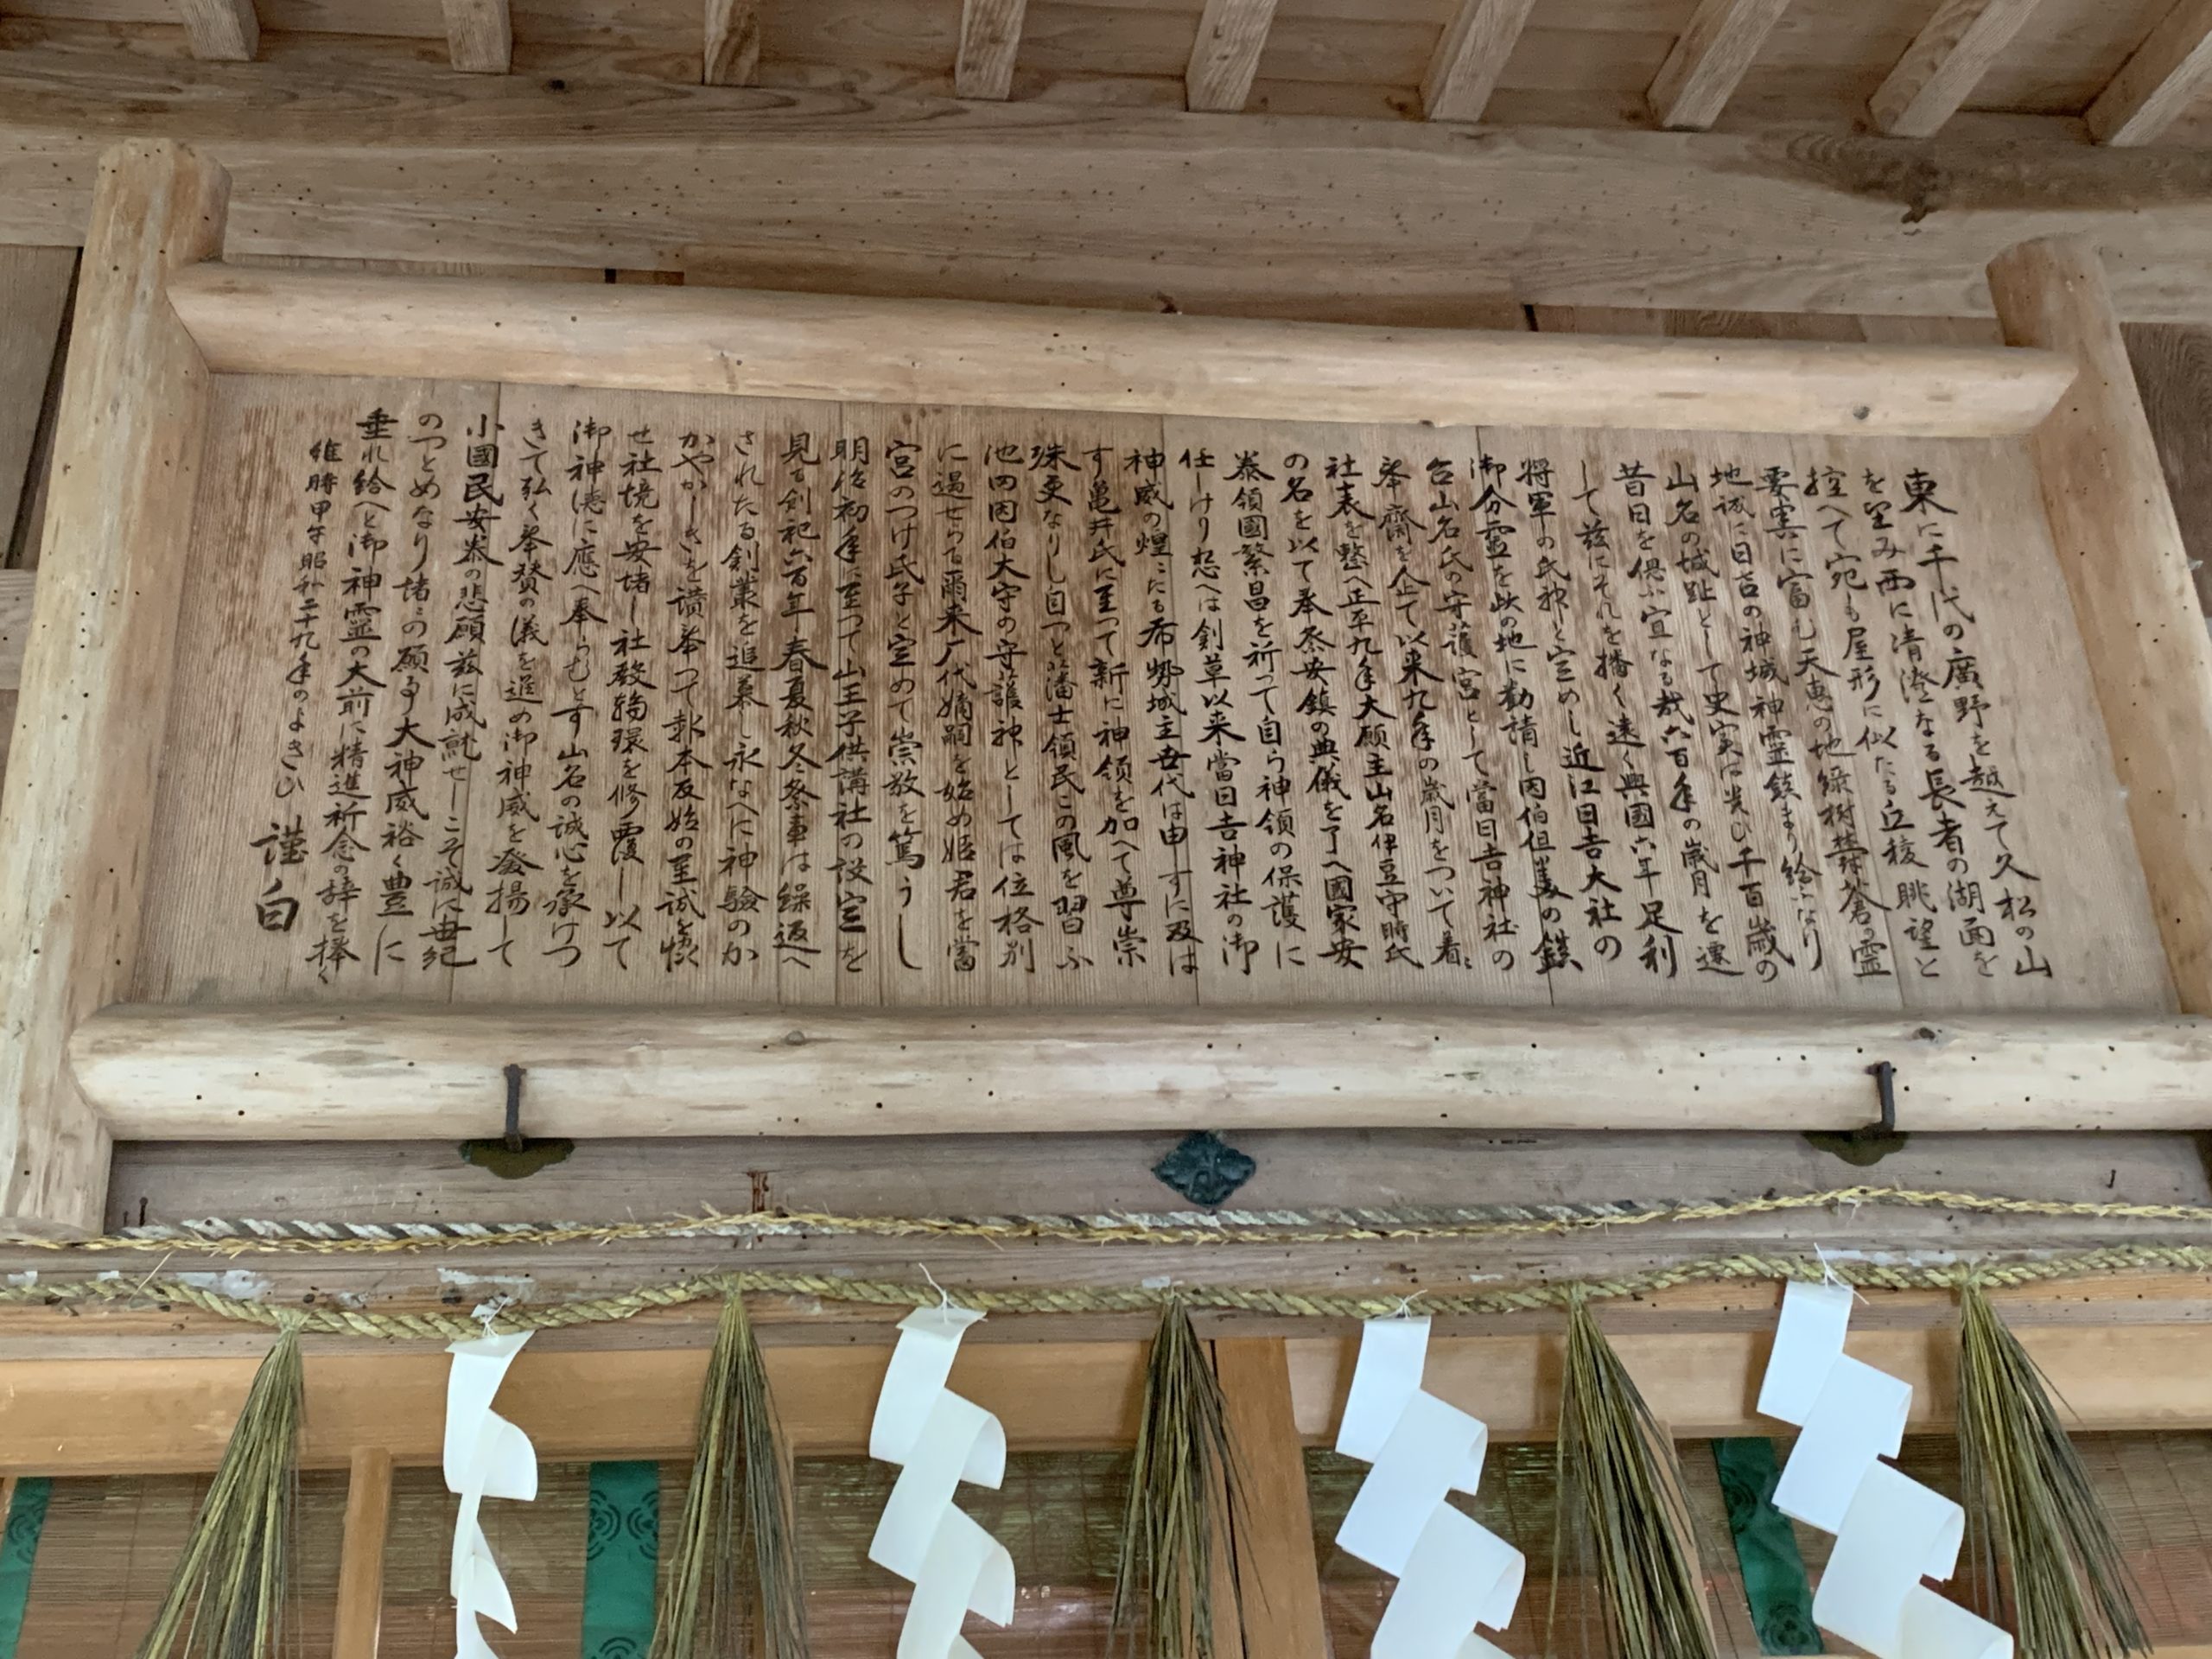 東に千代の廣野を越えて久松の山
を望み西に清澄なる長者の湖面を
控へて宛も屋形に似たる丘稜眺望と
要害に富む天恵の地緑樹欝蒼の霊
地誠に日吉の神域神霊鎮まり給ふなり
山名の城趾として史実は光ひ千百歳の
昔日を偲ふ宜なる哉六百年の歳月を遡
して茲にそれを播く遠く興國六年足利
将軍の氏神と定めし近江日吉大社の
御分霊を此の地に勧請し因伯但美の鎮
台山名氏の守護宮として當日吉神社の
奉齋を企て以来九年の歳月をついて着々
社表を整へ正平九年大願主山名伊豆守時氏
の名を以て奉祭安鎮の典儀を了へ國家安
泰領國繁昌を祈って自ら神領の保護に
任しけり想へは創草以来當日吉神社の御
神威の煌々たる布勢城主世代は申すに及は
す亀井氏に至って新に神領を加へて尊崇
殊更なりし自つと藩士領民この風を習ふ
池田因伯大守の守護神としては位格別
に過せらる爾来厂代嫡嗣を始め姫君を當
宮のつけ氏子と定めて崇敬を篤うし
明治初年に至って山王子供講社の設定を
見る創祀六百年春夏秋冬祭事は繰返へ
されたる創業を追慕し永なへに神験のか
かやかしきを讃奉つて報本反始の至誠を懐
せ社境を安堵し社殿輪環を修覆し以て
御神徳に應へ奉らむとす山名の誠心を承けつ
きて弘く奉賛の儀を進め御神威を發揚して
小國民安泰の悲願茲に成就せしこそ誠に世紀
のつとめなり諸々の願事大神威裕く豊に
垂れ給へと御神霊の大前に精進祈念の辞を捧く
維時甲午昭和二十九年のよきひ 謹白